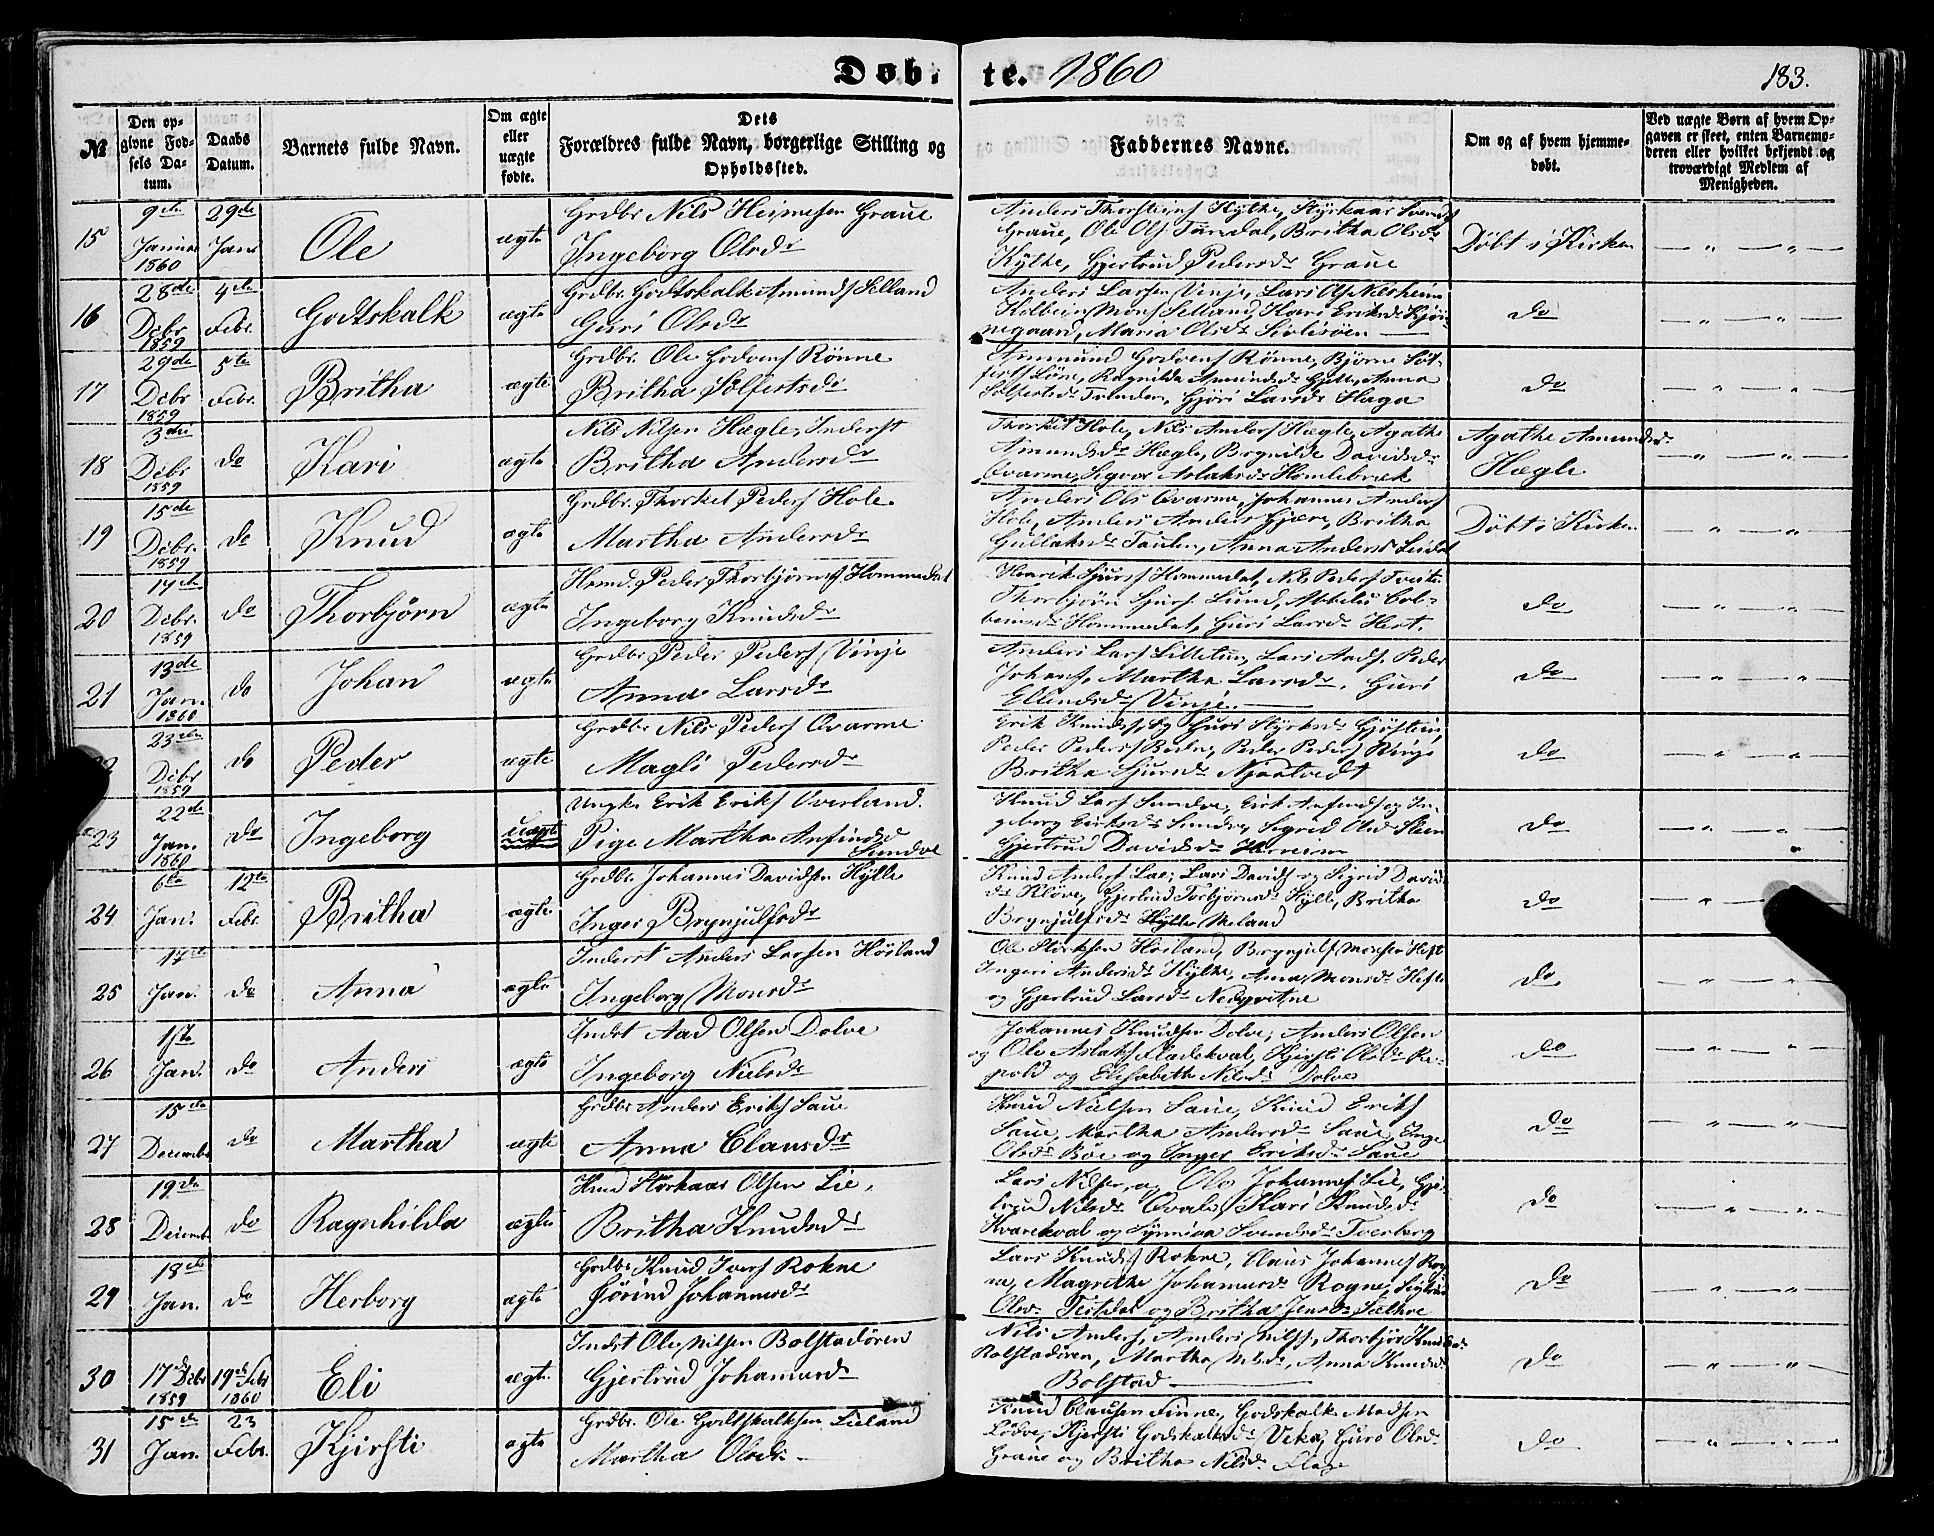 Døbte. 1860
183.
№
Den opgivne Fødsels Datum.
Daabs Datum.
Barnets fulde Navn.
Om ægte eller uægte fødte.
Dets Forældres fulde Navn, borgerlige Stilling og Opholdssted.
Faddernes Navne.
Om og af hvem hjemmedøbt.
Ved uægte Børn af hvem Opgaven er skeet, enten Barnemoderen eller hvilket bekjendt og troværdigt Medlem af Menigheden.
15
9de Januar 1860
29de Jan.
Ole
ægte
Grdbr Nils Heinesen Graue
Ingeborg Olsdr
Anders Thorsteins Kylke, Styrkaar Svends
Graue, Ole Ols Tøndal, Britha Olsdr
Kylke, Gjertrud Pedersdr Graue
Døbt i Kirken
16
28de Debr 1859
4de Febr.
Godtskalk
ægte
Grdbr. Godtskalk Amunds Selland
Guri Olsdr
Anders Larsen Vinje, Lars Ols Nesheim
Kolbein Mons Selland, Kari Eriksdr
Maria Olsdr
do
17
29de Debr 1859
5te Febr.
Britha
ægte
Grdbr. Ole Godvens Rønne
Britha Sølfestsdr
Ammund Godvens Rønne, Bjørne
Ragnilda Amundsdr Anna
Sølfestsdr Gjøri Larsdr Haga
do
18
3die Debr 1859
do
Kari
ægte
Nils Nilsen Hægle, Inderst
Britha Andersdr
Thorkel Hole, Nils Anders Hægle, Agathe
Amundsdr Hægle, Bognilde Davidsdr
Qvarme, Sigvor Aslaksdr Homlebræk
Agathe Amundsdr
Hægle
19
15de Debr. 1859
do
Knud
ægte
Grdbr. Thorkel Peders Hole.
Martha Andersdr
Anders Ols Qvarme, Johannes Anders
Hole, Anders Anders Gjære, Britha
Gullaksdr Anna Andersdr
Døbt i Kirken
20
17de Debr. 1859
do
Thorbjørn
ægte
Hmd. Peder Thorbjørns Hommedal
Ingeborg Knudsdr
Henrik Sjurs Hommedal, Nils Peders Tveite
Thorbjørn Sjurs Lund, Abbelu Colbeinsdr
Hommedal, Guri Larsdr
do
21
13de Jan. 1860
do
Johan
ægte
Grdbr Peder Peders Vinje
Anna Larsdr
Anders Lars Lilletun, Lars Aads. Peder
Johans, Martha Larsdr, Guri
Ellendsdr Vinje.
do
23de Debr 1859
do
Peder
ægte
Grdbr Nils Peders Qvarme
Magli Pedersdr
Erik Knuds, og Guri Styrksdr Gjøstein,
Peder Peders Peder Peders Ringe
Britha Sjursdr Njaastvedt
do
23
22de Jan. 1860
do
Ingeborg
uægte
Ungk. Erik Eriks Qverland.
Pige Martha Anfindsd Sundve
Knud Lars Sundve, Erik Anfinds og Ingeborg
Eriksdr Sundve, Sigrid Olsd Steen
Gjertrud Davidsdr
do
24
6te Jan.
12te Febr.
Britha
ægte
Grdbr. Johannes Davidsen Hylle
Inger Brynjulfsdr
Knud Anders Lae, Lars Davids og Sigrid Davidsdr
Kløve, Gjertrud Torbjørnsdr Hylle, Britha
Brynjulfsdr Hylle Meland
do
25
17de Jan.
do
Anna
ægte
Inderst Anders Larsen Høiland
Ingeborg Monsdr
Ole Størksen Høiland, Brynjulf Monsen Hefte
Ingeri Andersdr Kylke, Anna Monsdr Hefte
og Gjertrud Larsdr Nedqvitne
do.
26
1ste Jan.
do
Anders
ægte
Indst Aad Olsen Dolve
Ingeborg Nielsdr
Johannes Knudsen Dolve, Anders Olsen
og Ole Aslaks Fladekval, Kjersti Olsdr
og Elisabeth Nilsdr Dolve
do
27
15de Decembr
do
Martha
ægte
Grdbr Anders Eriks Saue
Anna Clausdr
Knud Nielsen Saue, Knud Eriks
Saue, Martha Andersdr Saue, Inge
Olsdr Bøe og Inger Eriksdr Saue
do
28
19de Decembr
do
Ragnhilda
ægte
Hmd Storkaar Olsen Lie,
Britha Knudsdr
Lars Nilsen, og Ole Johannes Lie, Gjertrud
Nilsdr Qvale, Kari Knudsdr
Kvarekval og Synneva Svendsdr Tverberg
do
29
18de Jan.
do
Herborg
ægte
Grdbr Knud Ivers Rokne
Jørind Johannesdr
Lars Knuds Rokne, Claus Johannes Rogne,
Magrethe Johannesdr Rogne,
Olsdr og Britha Jensdr Sæthre
do
30
17de Debr 1859
19de Febr 1860
Eli
ægte
Indst Ole Nilsen Bolstadøren
Gjertrud Johannesdr
Nils Anders, Anders Nils, Thorbjør Knudsdr
Bolstadøren, Martha Nilsdr, Anna Knudsdr
Bolstad
do
31
15de Jan.
23 Febr.
Kjirsti
ægte
Grdbr. Ole Godtskalksen Lieland
Martha Olsdr
Knud Clausen Finne, Godskalk Madsen
Løbve, Kjersti Godskalksdr Veka, Guro Olsdr
Graue og Britha Nilsdr Flage
do